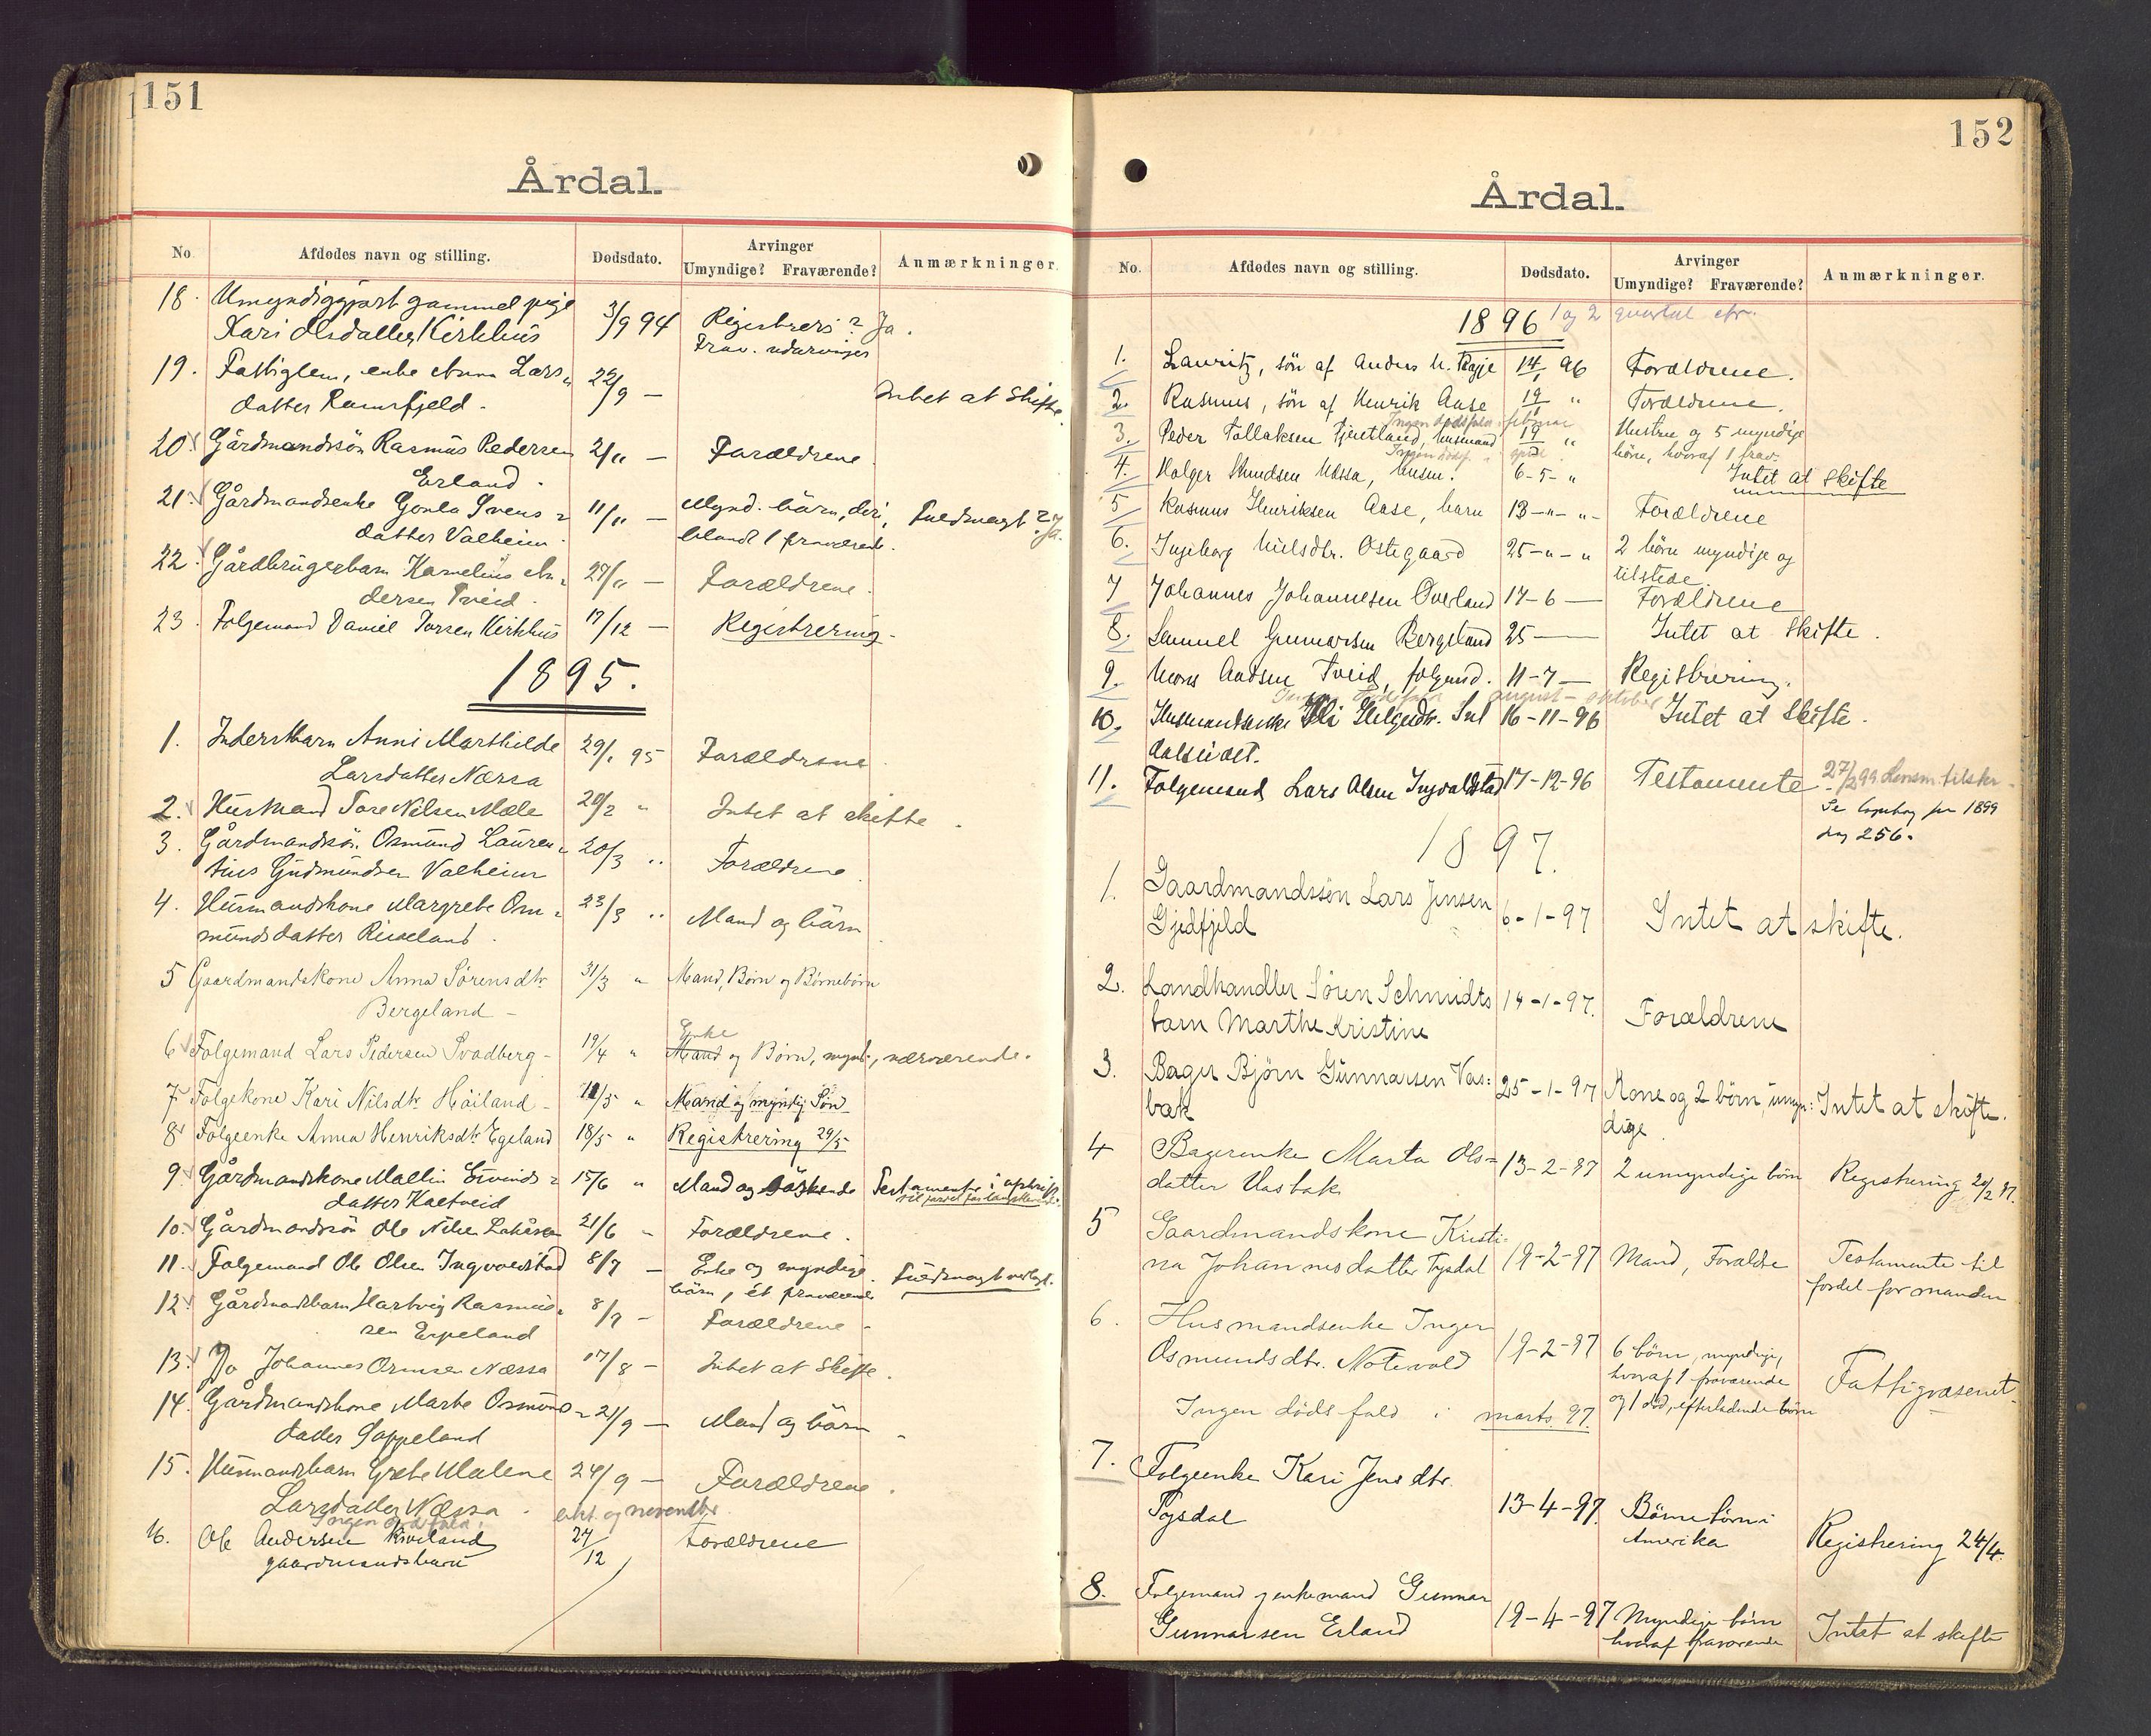 151
Årdal.
No. Afdødes navn og stilling. Dødsdato. Arvinger Anmærkninger.
Umyndige? Fraværende?
18. Umyndiggjort gammel pige
Kari Olsdatter Kirkhus 3/9 94 Registrers? Ja.
Frav. udarvinger
19. Fattiglem, enke Anna Lars-
datter Ramsfjeld. 22/9 — Intet at skifte.
20. Gårdmandsøn Rasmus Pedersen 2/11 — Forældrene.
Erland.
21. Gårdmandsenke Gonla Svens- 11/11 — Mynd. børn, deri- Fuldmagt? Ja.
datter Valheim. blandt 1 fraværende.
22. Gårdbrugerbarn Kornelius An- 27/11 — Forældrene.
dersen Tveid.
23. Folgemand Daniel Torsen Kirkhus 17/12 — Registrering.
1895.
1. Inderstbarn Anni Marthilde 29/1 95 Forældrene
Larsdatter Næssa
2. Husmand Tore Nilsen Mæle 20/2 " Intet at skifte.
3. Gårdmandssøn Osmund Lauren- 20/3 " Forældrene.
tius Gudmundsen Valheim
4. Husmandskone Margrete Om- 23/3 " Mand og børn.
mundsdatter Riveland.
5 Gaardmandskone Anna Sørensdtr. 31/3 " Mand, Børn og Børnebørn
Bergeland —
6 Folgemand Lars Pedersen Svadberg — 19/4 " Enke
Mand og Børn, mynd., nærværende.
7 Folgekone Kari Nilsdtr. Høiland — 11/5 " Mand og myndig Søn
8 Folgeenke Anna Henriksdtr. Egeland 18/5 " Registrering 29/5
9 Gårdmandskone Mallin Eivinds- 15/6 " Mand og søskende Testamente i afskrift
datter Kaltveid
10. Gårdmandssøn Ole Nilsen 21/6 " Forældrene.
11. Folgemand Ole Olsen Ingvaldstad 8/7 — Enke og myndige Fuldmagt
børn, ét fraværende
12. Gårdmandsbarn Hartvig Rasmus- 8/7 — Forældrene —
sen Erpeland
13. Do Johannes Ormsen Næssa 17/8 — Intet at Skifte.
14. Gårdmandskone Marte Osmund- 21/9 — Mand og børn
datter Soppeland
15. Husmandsbarn Grete Malene 24/9 — Forældrene.
Larsdatter Næssa.
Ingen dødsfald i okt. og november
16. Ole Andersen Riveland 27/12 Forældrene
gaardmandsbarn
152
Årdal.
No. Afdødes navn og stilling. Dødsdato. Arvinger Anmærkninger.
Umyndige? Fraværende?
1896 1 og 2 quartal
1. Lauritz, søn af Anders N. 14/1 96 Forældrene.
2. Rasmus, søn af Henrik Aase 19/1 " Forældrene.
Ingen dødsfald i februar
3. Peder Tollaksen Fjentland, husmand 19 " Hustru og 5 myndige
børn, hvoraf 1 frav.
Ingen dødsf. i april
4. Holger Knudsen Næssa, husm. 6-5- " Intet at skifte
5 Rasmus Henriksen Aase, barn 13-"-"- Forældrene
6. Ingeborg Nielsdtr. Østegaard 25-"-" 2 børn myndige og
tilstede.
7 Johannes Johannesen Øverland 17-6 — Forældrene
8. Samuel Gunnarsen Bergeland 25 — Intet at skifte.
9. Mons Aadsen Tveid, folgmd. 11-7 — Registrering.
Ingen dødsfald august - oktober
10. Husmandsenke Helgesdtr. 16-11-96 Intet at skifte.
dalseidet.
11. Folgemand Lars Olsen Ingvaldstad 17-12-96 Testamente 27/2 99 Lensm. tilskr.
Se kopibog for 1899
pag 256.
1897.
1. Gaardmandssøn Lars Jensen
Gjedfjeld 6-1-97 Intet at skifte.
2. Landhandler Søren Schmidts 14-1-97. Forældrene
barn Marthe Kristine
3. Bager Bjørn Gunnarsen Vas- 25-1-97 Kone og 2 børn, umyn- Intet at skifte.
bak dige
4 Bagerenke Marta Ols- 13-2-97 2 umyndige børn Registrering 20/2 97.
datter Vasbak
5 Gaardmandskone Kristi-
na Johannesdatter Tysdal 19-2-97 Mand, Forældre Testamente til
fordel for manden
6. Husmandsenke Inger
Osmundsdtr. Notevold 19-2-97 6 børn, myndige,
hvoraf 1 fraværende Fattigvæsenet
og 1 død, efterladende børn
Ingen dødsfald i marts 97.
7. Folgeenke Kari Jensdtr.
Tysdal 13-4-97. Børnebørn i
Amerika Registrering 24/4.
8. Folgemand og enkemand Gunnar
Gunnarsen Erland 19-4-97 Myndige børn
hvoraf fraværende Intet at skifte